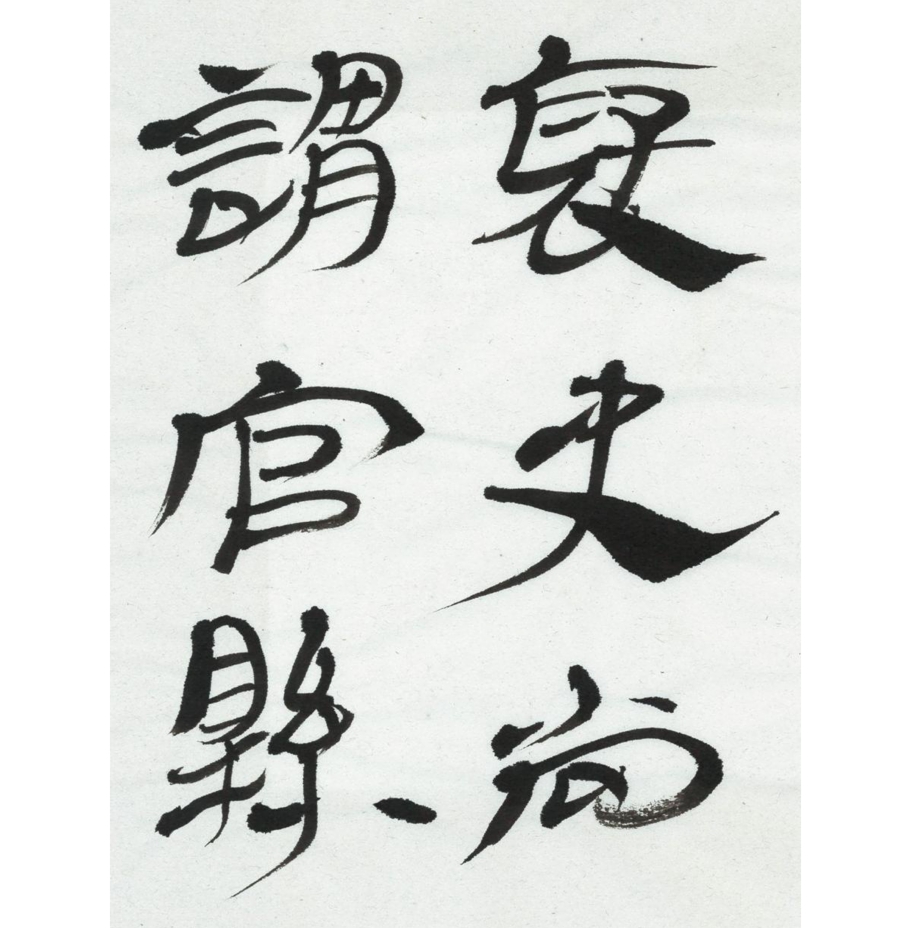 褒史尚
謂官縣